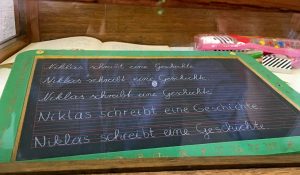 Niklas schreibt eine Geschichte
Niklas schreibt eine Geschichte
Niklas schreibt eine Geschichte
Niklas schreibt eine Geschichte
Niklas schreibt eine Geschichte